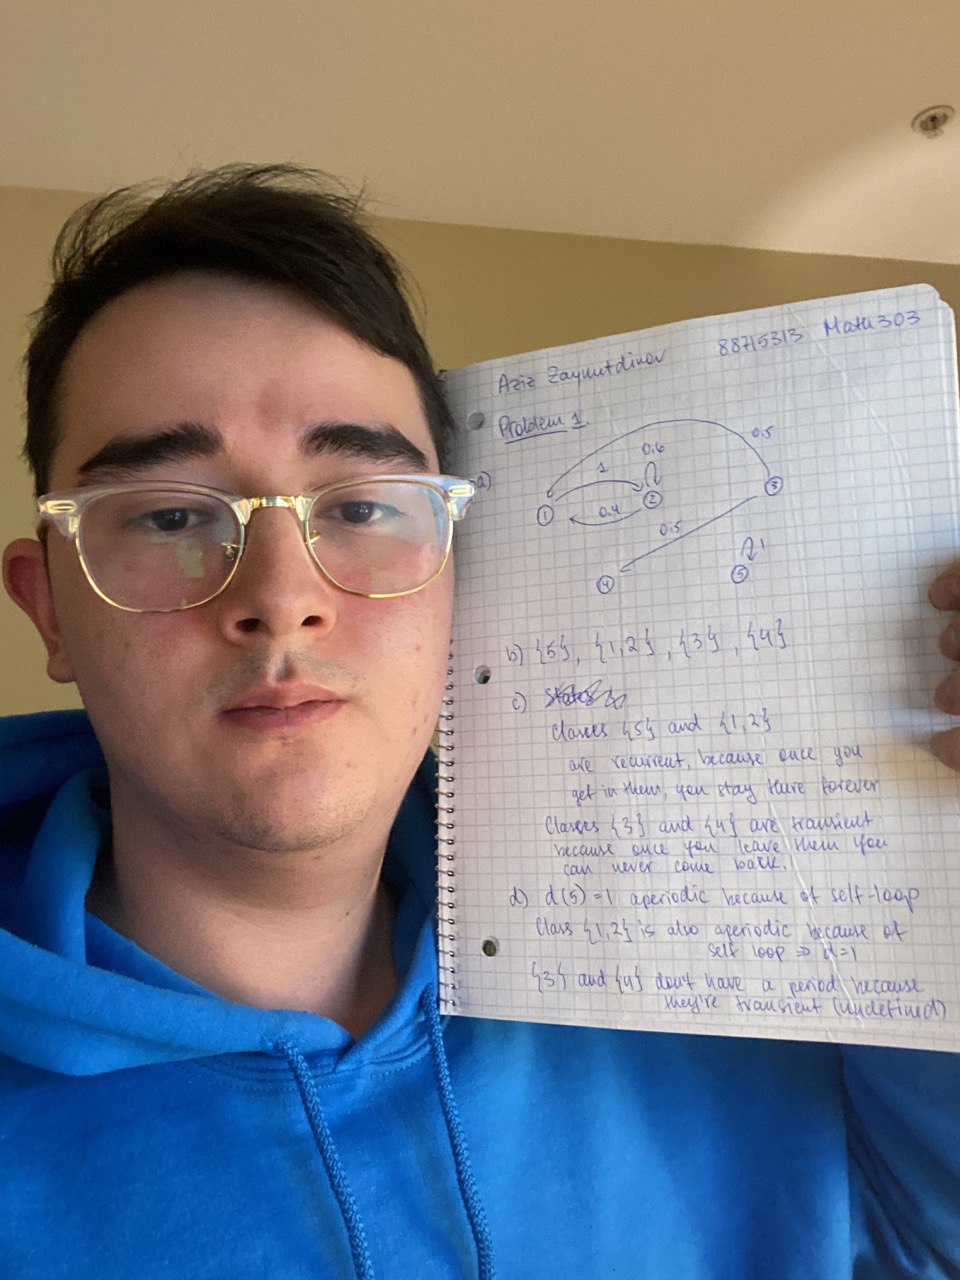 Aziz Zaynutdinov 88715313 Math 303
Problem 1.
a)
0.5
0.6
1
3
2
1
0.4
0.5
1
4
5
b) {5}, {1,2}, {3}, {4}
c)
Classes {5} and {1,2}
are recurrent, because once you
get in them, you stay there forever
Classes {3} and {4} are transient
because once you leave them you
can never come back.
d) d(5)=1 aperiodic because of self-loop
Class {1,2} is also aperiodic because of
self loop ⇒ d=1
{3} and {4} don't have a period because
they're transient (undefined)